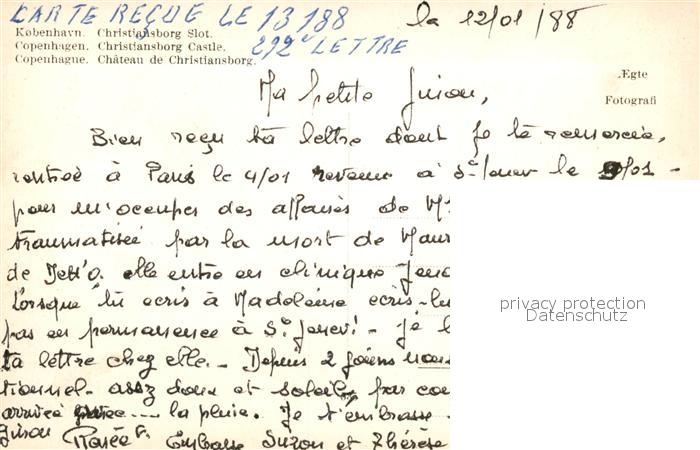 CARTE REÇUE LE 13 1 88
la 12/01/88
København. Christiansborg Slot.
Copenhagen. Christiansborg Castle.
Copenhague. Château de Christiansborg.
292e LETTRE
Ægte
Fotografi
Ma petite
Bien reçu ta lettre dont je te remercie,
rentrée à Paris le 4/01 revenue à St le /01 -
pour m'occuper des affaires de
traumatisée par la mort de
de elle entre en clinique
Lorsque tu ecris à Madeleine ecris-lui
pas en permanence à St -
ta lettre chez elle. - Depuis 2
tionnel - assz doux et par
arrivée la pluie. Je t'embrasse
Renée Embrasse Suzon et Thérèse
privacy protection
Datenschutz